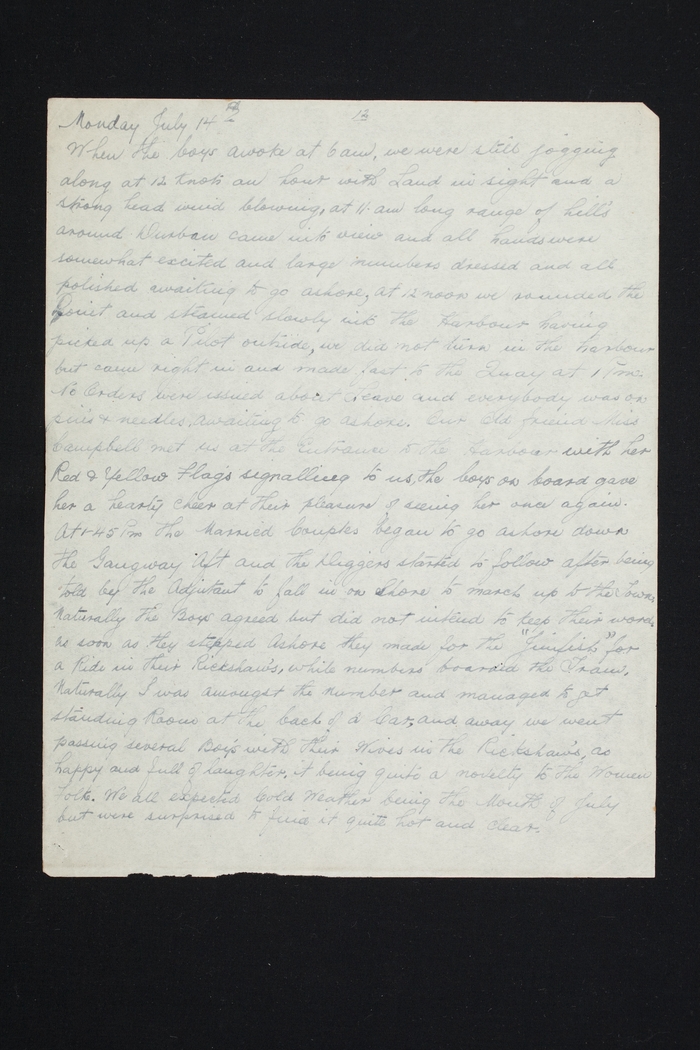 Monday July 14th 13
When the boys awoke at 6 am, we were still jogging
along at 12 knots an hour with Land in sight and a
strong head wind blowing, at 11 am long range of hills
around Durban came into view and all hands were
somewhat excited and large numbers dressed and all
polished awaiting to go ashore, at 12 noon we rounded the
Point and steamed slowly into the Harbour having
picked up a Pilot outside, we did not turn in the harbour
but came right in and made fast to the Quay at 1 Pm.
No Orders were issued about Leave and everybody was on
pins & needles, awaiting to go ashore. Our Old friend Miss
Campbell met us at the Entrance to the Harbour with her
Red & Yellow Flags signalling to us, the boys on board gave
her a hearty cheer at their pleasure of seeing her once again.
At 1-45 Pm the Married Couples began to go ashore down
the Gangway Aft and the Diggers started to follow after being
told by the Adjutant to fall in on Shore to march up to the Town,
Naturally the Boys agreed but did not intend to keep their word,
as soon as they stepped Ashore they made for the "Jinfish" for
a Ride in their Rickshaw's, while numbers boarded the Tram,
Naturally I was amongst the number and managed to get
standing Room at the back of a Car, and away we went
passing several Boys with their Wives in the Rickshaw's, as
happy and full of laughter, it being quite a novelty to the Women
folk. We all expected Cold Weather being the Month of July
but were surprised to find it quite hot and clear.